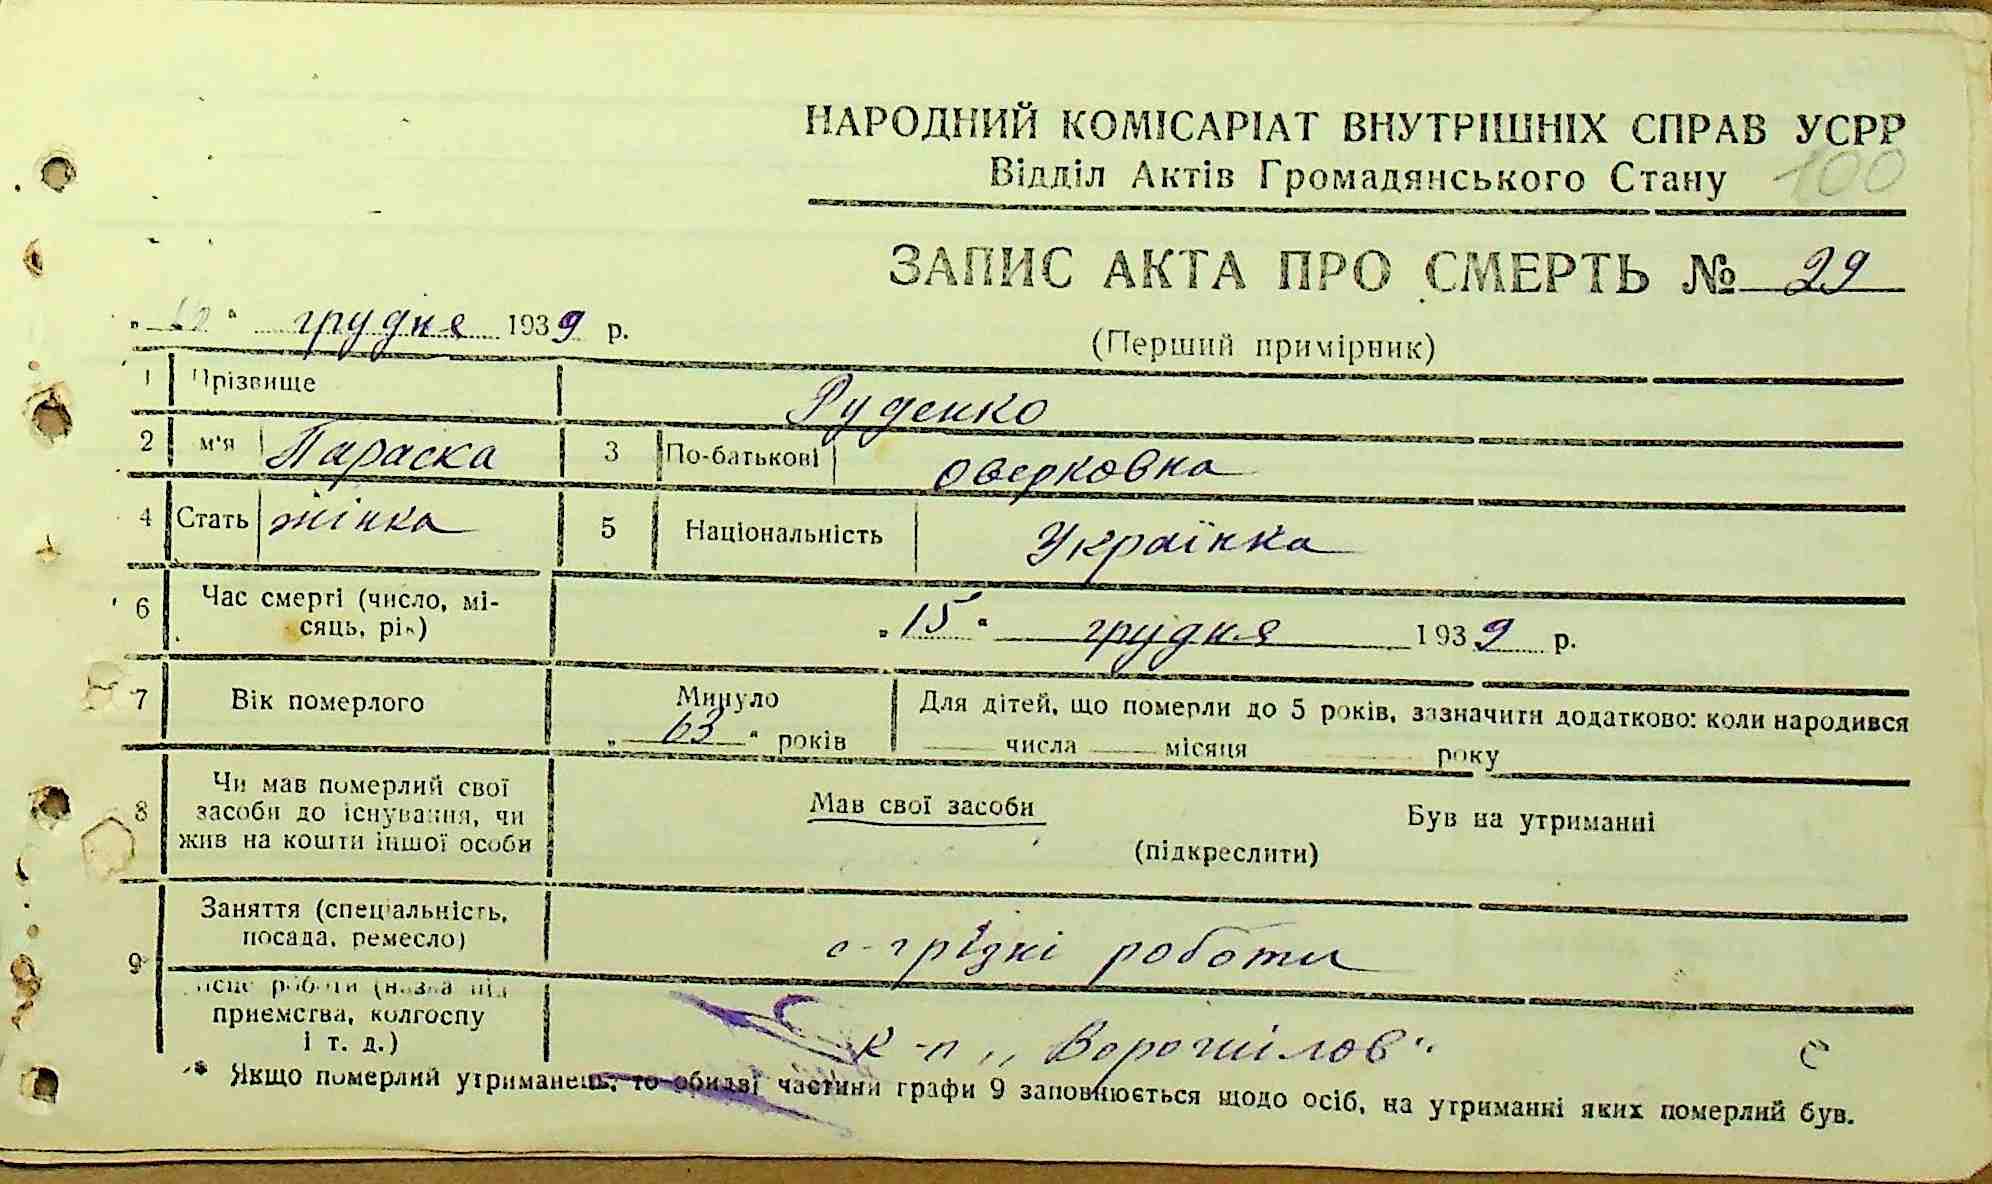 НАРОДНИЙ КОМІСАРІАТ ВНУТРІШНІХ СПРАВ УСРР
Відділ Актів Громадянського Стану 100
ЗАПИС АКТА ПРО СМЕРТЬ № 29
" " грудня 1939 р.
(Перший примірник)
1 Прізвище Руденко
2 м'я Параска 3 По-батькові Оверковна
4 Стать жінка 5 Національність Українка
6 Час смерті (число, мі-
сяць, рік) „15" грудня 1939 р.
7 Вік померлого Минуло Для дітей, що померли до 5 років, зазначити додатково: коли народився
„63" років числа місяця року
8 Чи мав померлий свої
засоби до існування, чи
жив на кошти іншої особи
Мав свої засоби Був на утриманні
(підкреслити)
9 Заняття (спеціальність,
посада, ремесло) роботи
місце роботи (назва під
приємства, колгоспу
і т. д.)
К-п „Ворошілов"
* Якщо померлий утриманець, то обидві частини графи 9 заповнюється щодо осіб, на утриманні яких померлий був.